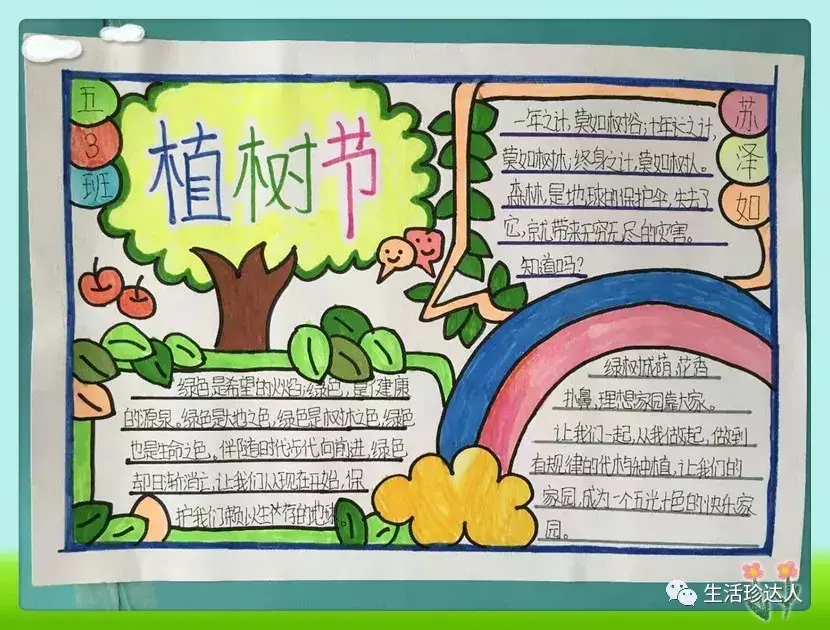 五
3
班
植树节
苏
泽
如
一年之计,莫如树谷;十年之计,
莫如树木;终身之计,莫如树人。
森林是地球的保护伞,失去了
它,就带来无穷无尽的灾害。
知道吗?
绿色,是希望的火焰;绿色,是健康
的源泉。绿色是大地之色,绿色是树木之色,绿色
也是生命之色。伴随时代步代向前进,绿色
却日渐消亡,让我们从现在开始,保
护我们赖以生存的地球。
绿树成荫,花香
扑鼻,理想家园靠大家。
让我们一起,从我做起,做到
有规律的伐木与种植,让我们的
家园,成为一个五光十色的快乐家
园。
生活珍达人